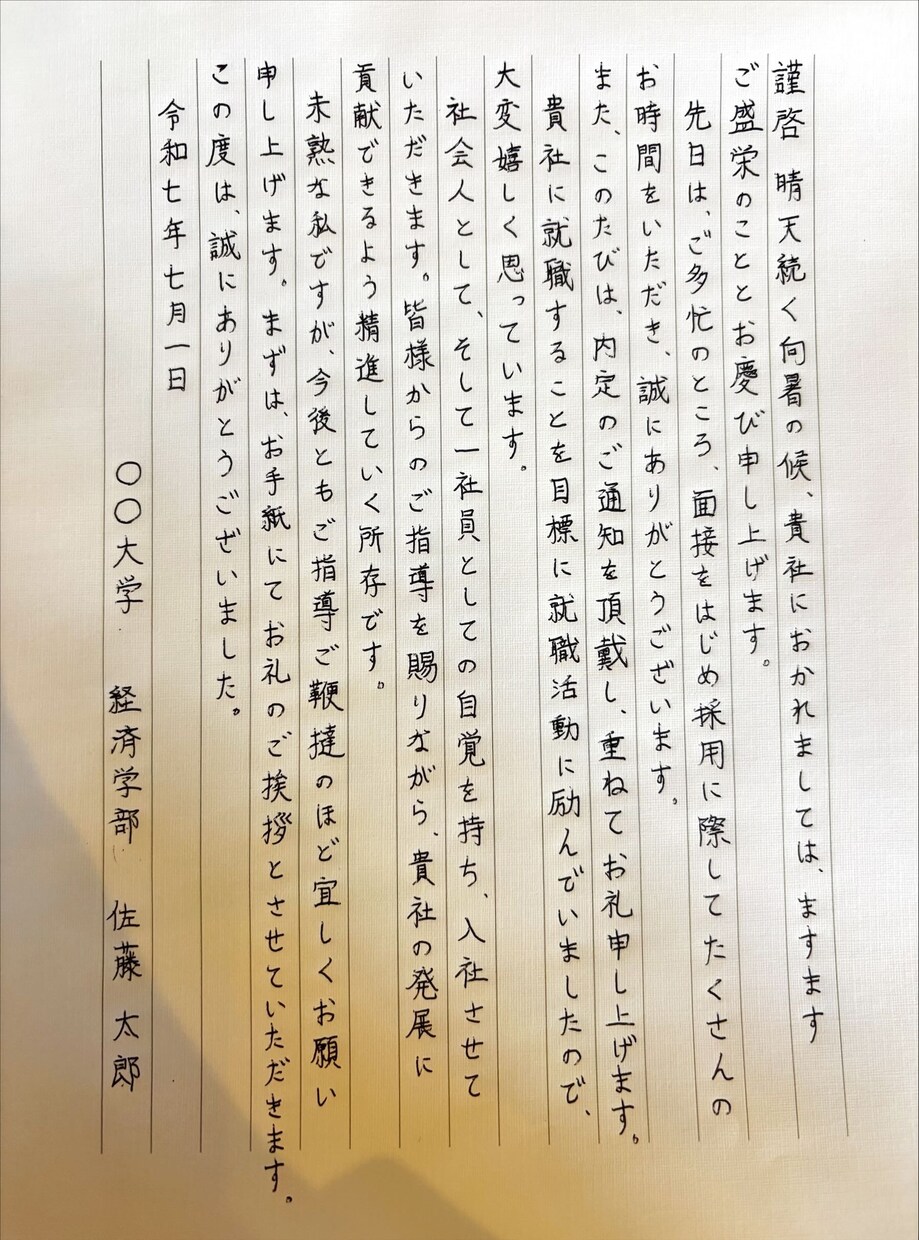 謹啓 晴天続く向暑の候、貴社におかれましては、ますます
ご盛栄のこととお慶び申し上げます。
先日は、ご多忙のところ、面接をはじめ採用に際してたくさんの
お時間をいただき、誠にありがとうございます。
また、このたびは、内定のご通知を頂戴し、重ねてお礼申し上げます。
貴社に就職することを目標に就職活動に励んでいましたので、
大変嬉しく思っています。
社会人として、そして一社員としての自覚を持ち、入社させて
いただきます。皆様からのご指導を賜りながら、貴社の発展に
貢献できるよう精進していく所存です。
未熟な私ですが、今後ともご指導ご鞭撻のほど宜しくお願い
申し上げます。まずは、お手紙にてお礼のご挨拶とさせていただきます。
この度は、誠にありがとうございました。
令和七年七月一日
〇〇大学 経済学部 佐藤 太郎